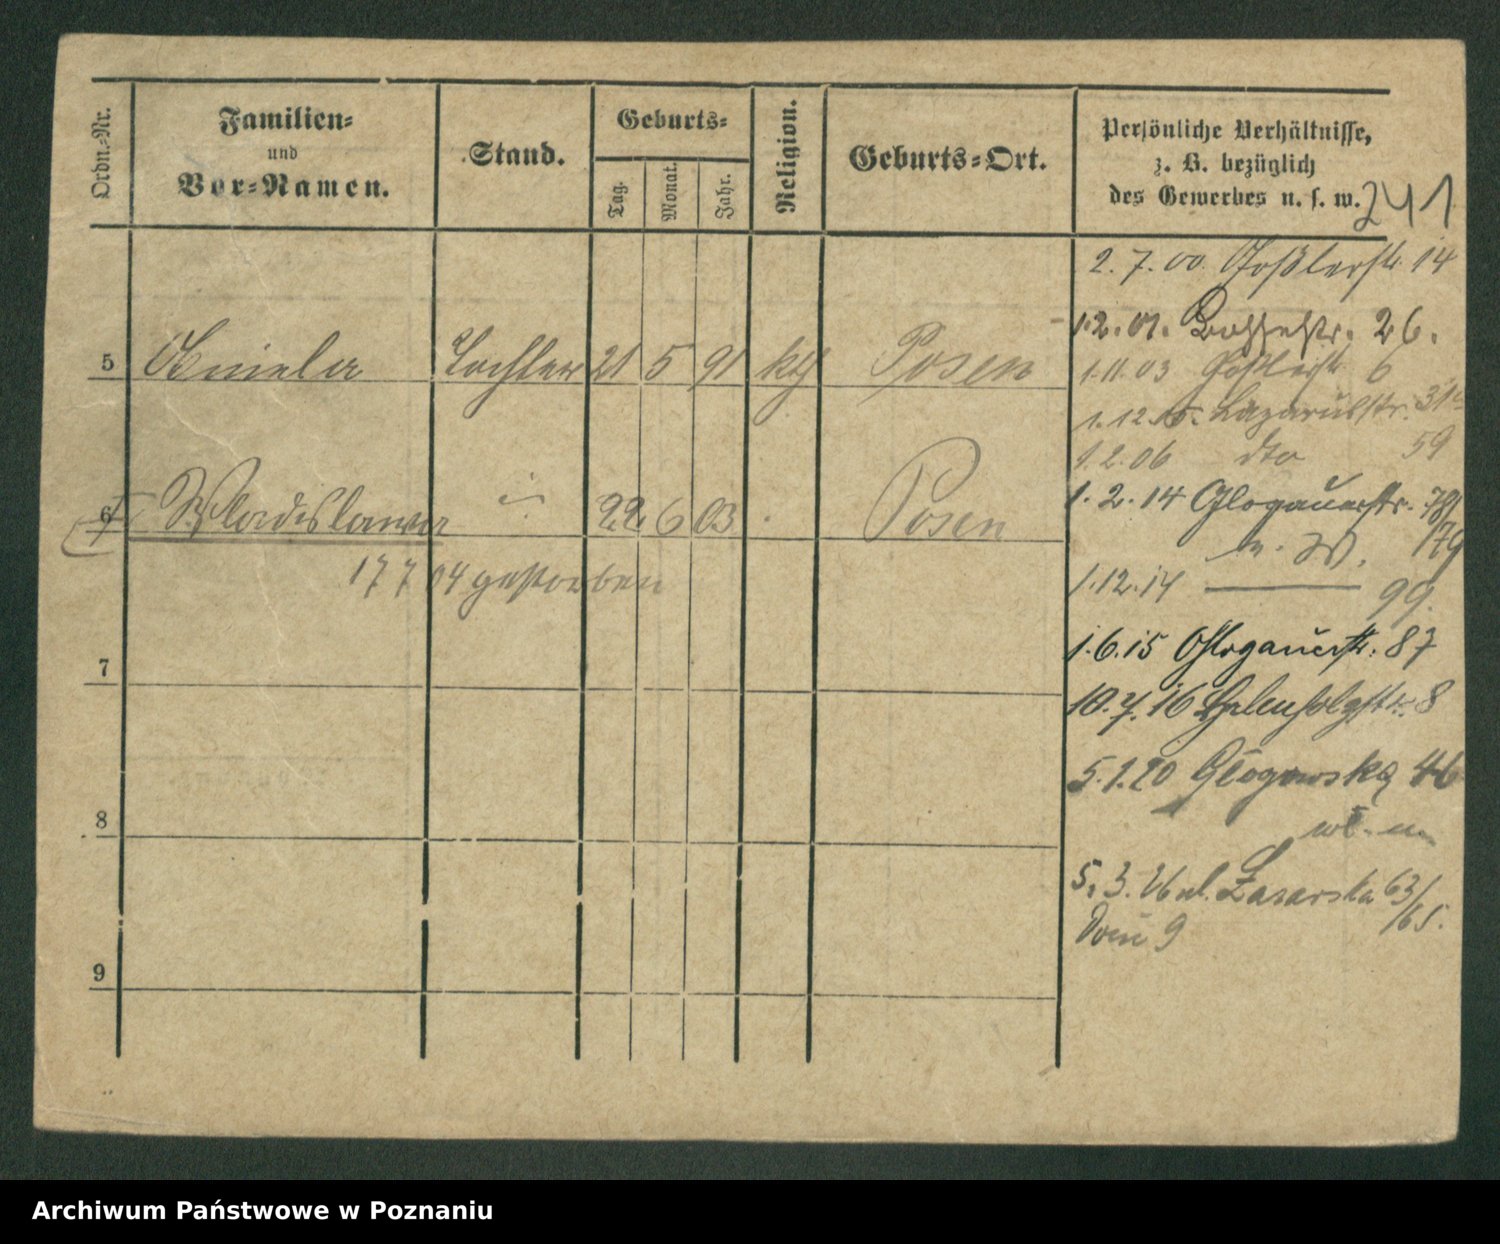 Ordn.-Nr.
Familien-
und
Vor-Namen.
Stand.
Geburts-
Tag.
Monat.
Jahr.
Religion.
Geburts-Ort.
Persönliche Verhältnisse,
z. B. bezüglich
des Gewerbes u. s. w.
241
2. 7. 00. Goßlerstr. 14
1.2.01. 26.
5 Aniela Tochter 21 5 91 kth Posen
1.11.03 Goßlerstr. 6
1.12.05. Lazarusstr. 31
1.2.06 dto 59
6 Wladislawa " 22 6 03 Posen
1.2.14 Glogauerstr. 78/79
1.12.14 — 99.
17 7 04 gestorben
1.6.15 Glogauerstr. 87
7
10.7.16 8
5.1.20 Głogowska 46
8
5.3. ul. Łazarska 63/65.
9
Archiwum Państwowe w Poznaniu